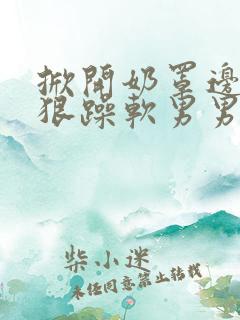 掀開奶罩邊
狠躁軟男男
柴小迷
未任同意禁止转载